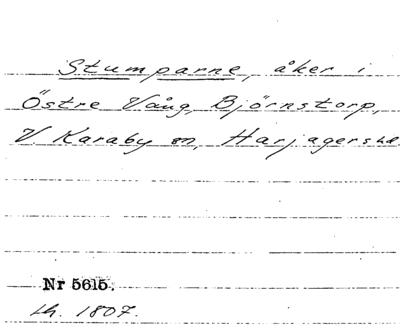 Stumparne, åker i
Östre Vång, Björnstorp,
V. Karaby sn, Harjagers hd.
Nr 5615.
LH. 1807.